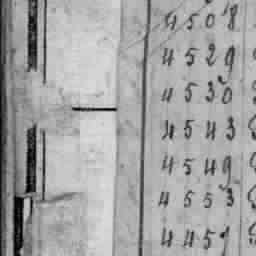 4508
4529
4530
4543
4549
4553
4459